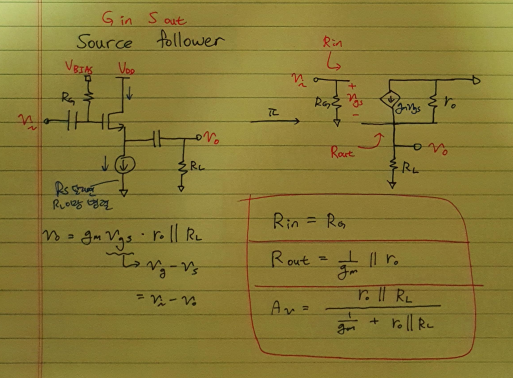 G in S out
Source follower
V_BIAS V_DD
R_G
v_i
v_o
R_L
R_S
R_L
v_o = g_m v_gs · r_o || R_L
v_g - v_s
= v_i - v_o
π
R_in
v_i
R_G
+
v_gs
-
g_m v_gs
r_o
R_out
v_o
R_L
R_in = R_G
R_out = 1/g_m || r_o
A_v = (r_o || R_L) / (1/g_m + r_o || R_L)